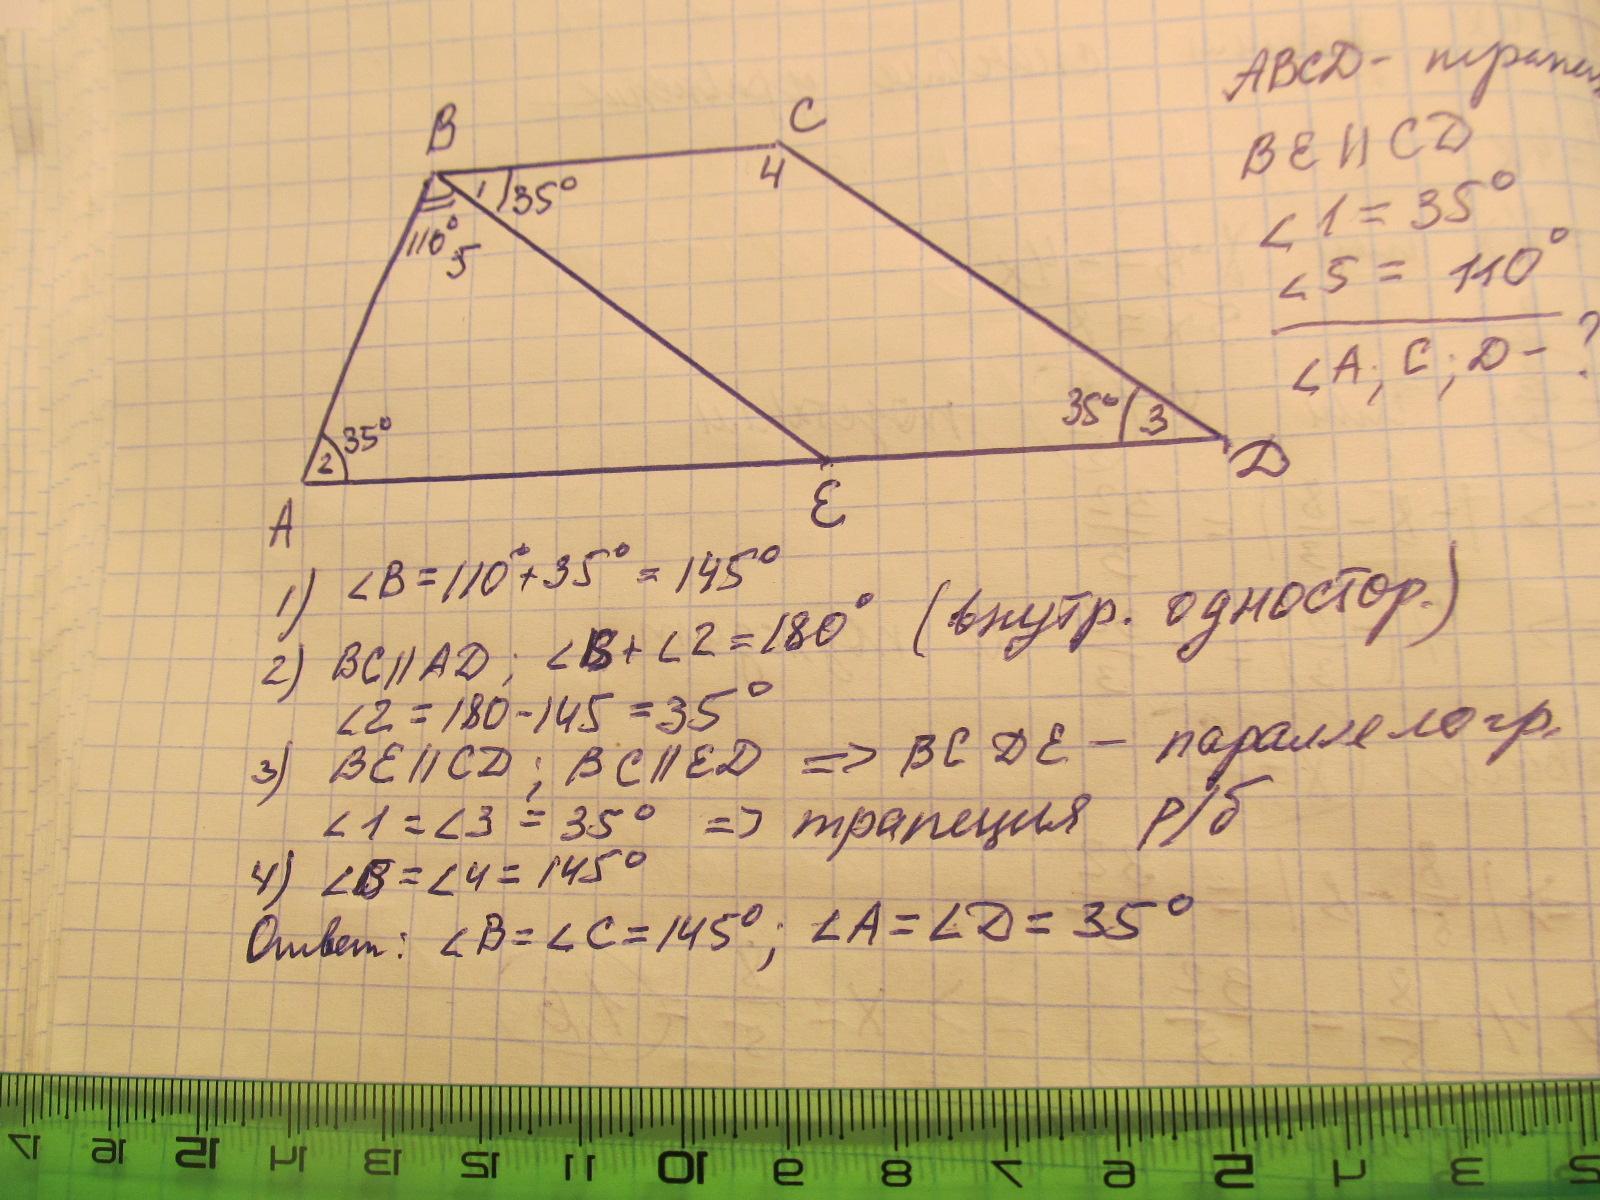 B
C
ABCD -
BE || CD
∠1 = 35°
∠5 = 110°
∠A; C; D - ?
1
35°
4
110°
5
35°
2
35°
3
A
E
D
1) ∠B = 110° + 35° = 145°
2) BC || AD; ∠B + ∠2 = 180° (внутр. одностор.)
∠2 = 180 - 145 = 35°
3) BE || CD; BC || ED => BCDE - параллелогр.
∠1 = ∠3 = 35° => трапеция р/б
4) ∠B = ∠4 = 145°
Ответ: ∠B = ∠C = 145°; ∠A = ∠D = 35°
17 16 15 14 13 12 11 10 9 8 7 6 5 4 3 2